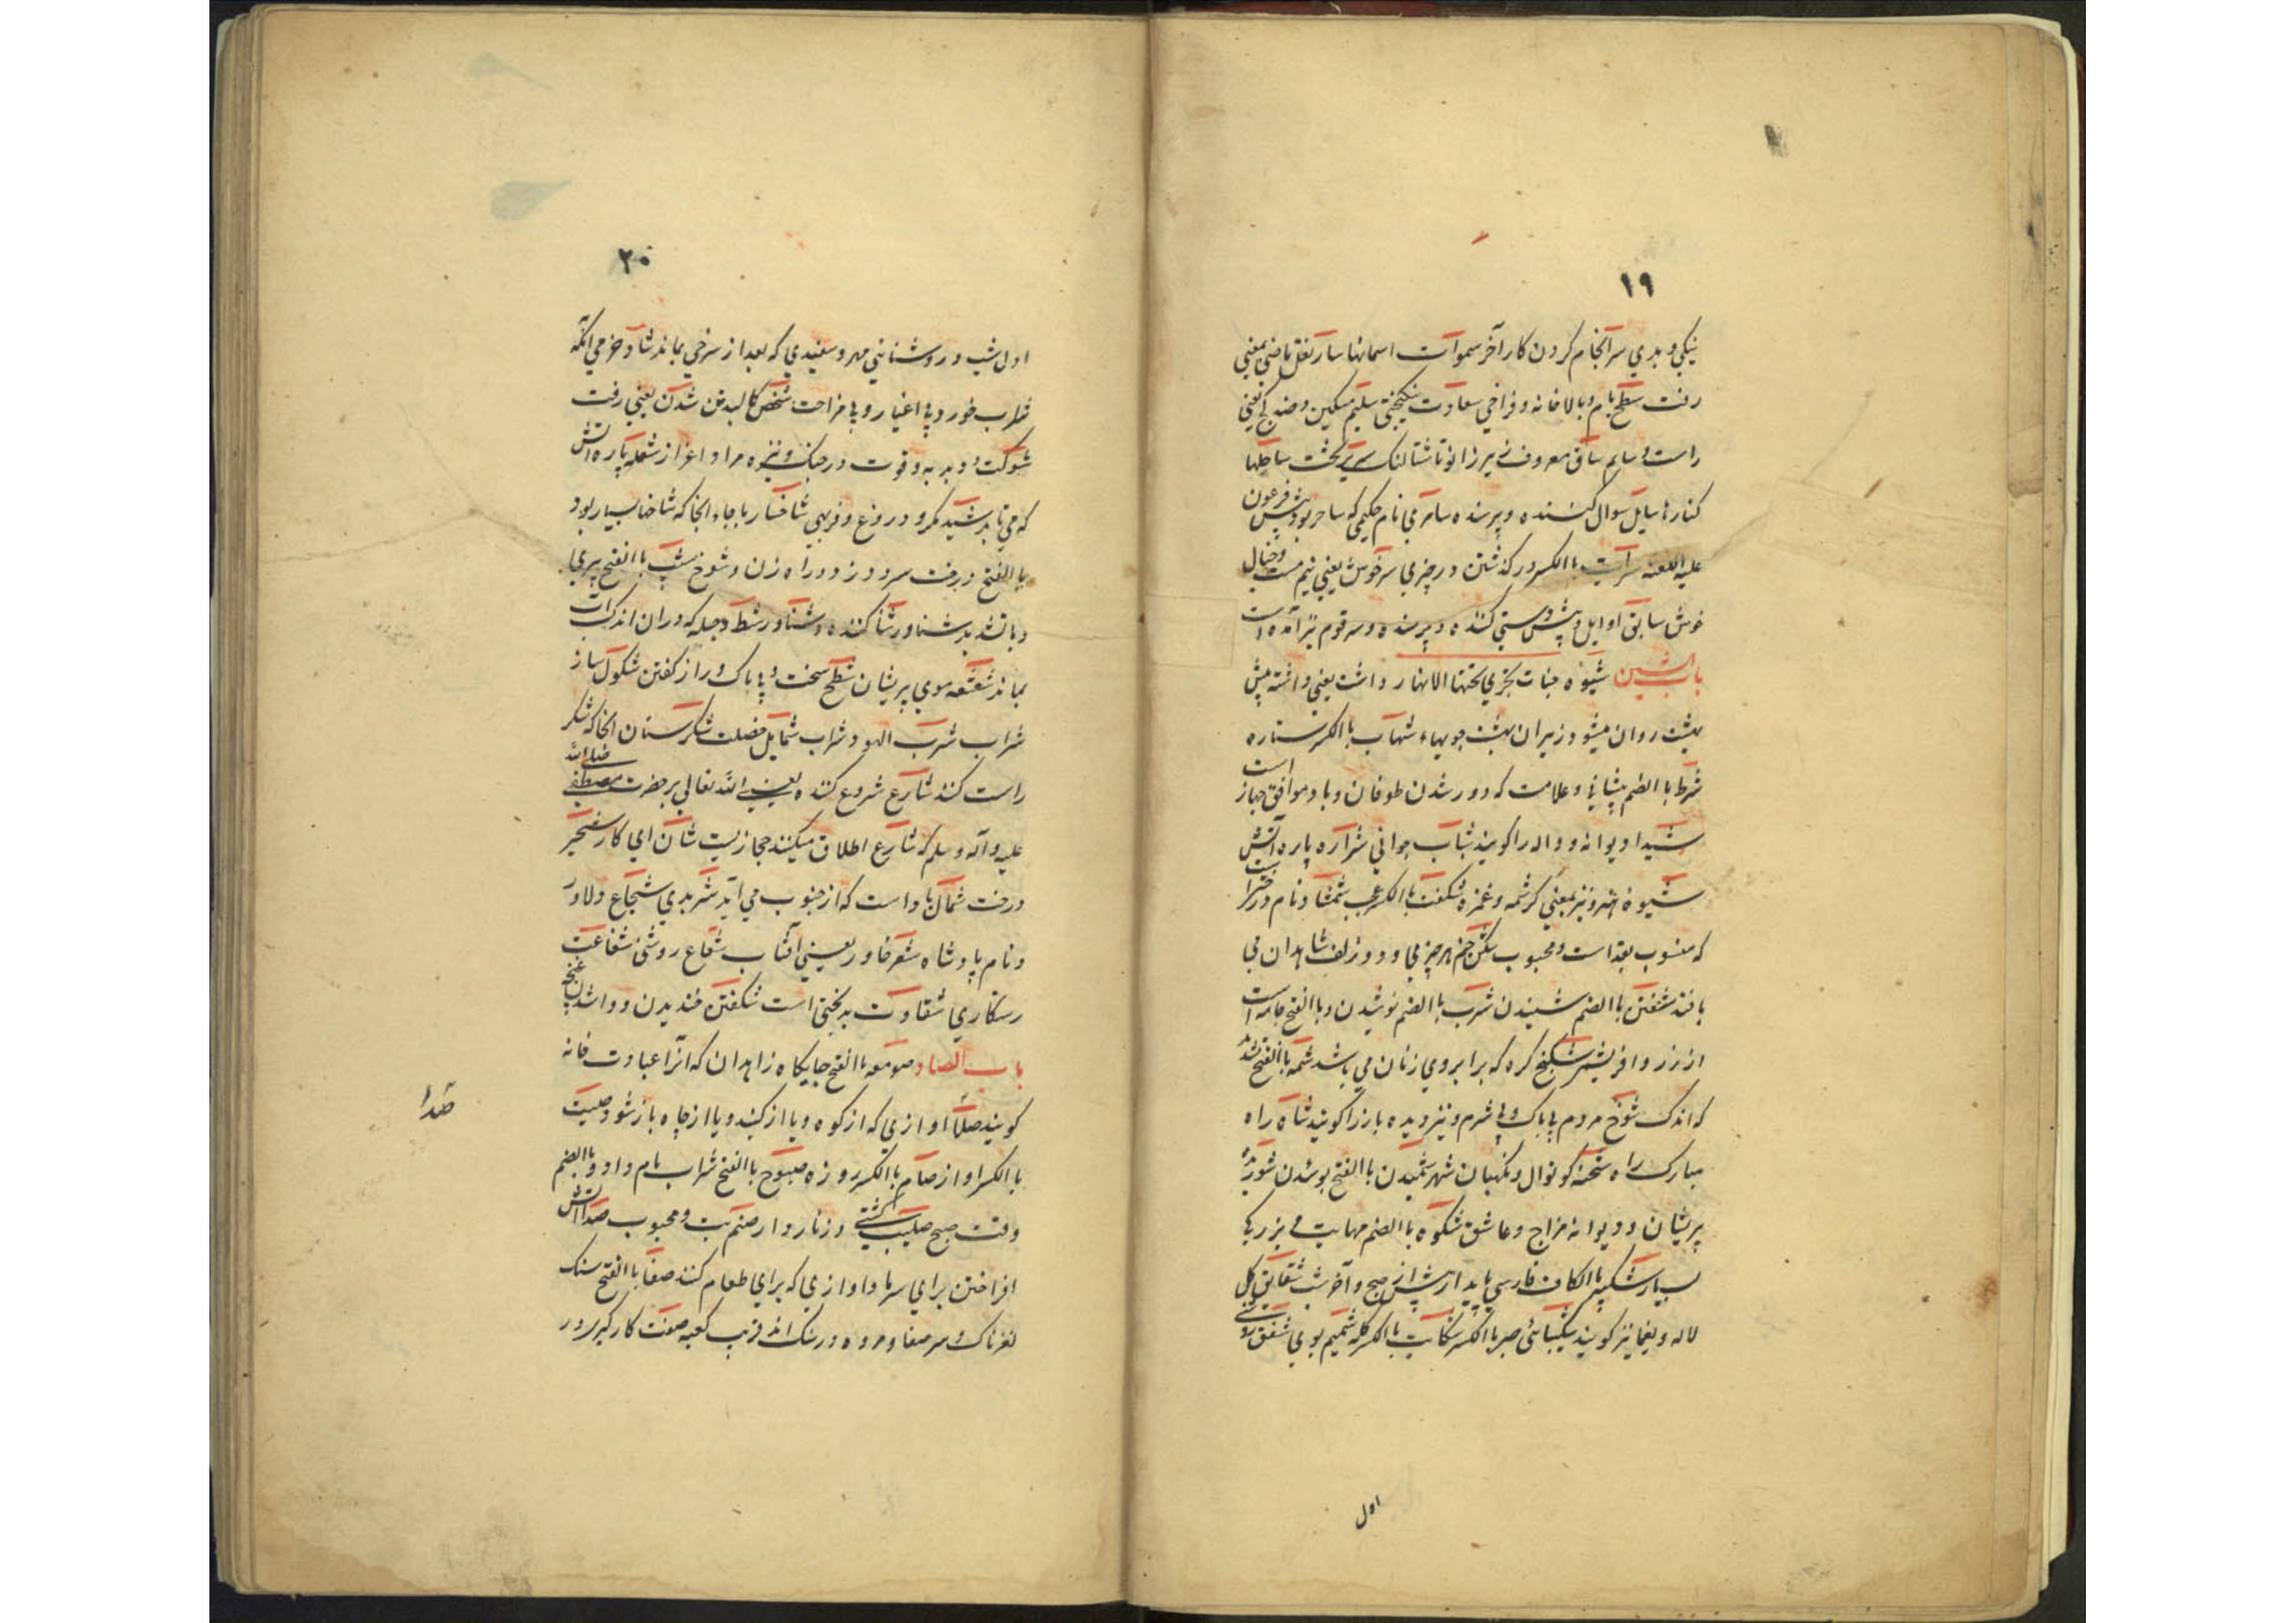 ۱۹
نیکی و بدی سرآنجام کردن کار آخر سموآت اسمانها سار نقل ماضی بمعنی
رفت سطح بام و بالاخانه و فراخی سعاوت نیکبختی سلیم مسکین و ضد کج یعنی
راست و سالم ساق معروف نی سر زانو تا شتالنک سریر تخت ساحلها
کنارها سایل سوال کننده و پرسنده سامری نام حکیمی که ساحر بود پیش فرعون
علیه اللعنه سرآیت با الکسر در کذشتن در چیزی سرخوش یعنی نیم مست و خیال
خوش سابق اوایل و پیش دستی کننده و پرسنده و سرقوم نیز آمده است
باب الشین شیوه جنات تجری تحتها الانهار داشت یعنی داشته پیش
بهشت روان میشود زیران بهشت جویهاء شهاب با الکسر ستاره
شرط با الضم پیشانی و علامت که دور شدن طوفان و باد موافق جهاز است
شیدا دیوانه و واله را کویند شباب جوانی شراره پاره آتش
شیوه هنر و نیز بمعنی کرشمه و غمزه شکفت با الکسر عجب شمشاد نام درخت
که منسوب بقد است و محبوب شکن خم هر چیزی و در زلف شاهدان می
بافند شفتن با الضم شنیدن شرب با الضم نوشیدن و با الفتح جامه است
از زر و افریشم شکنج کره که بر ابروی زنان می باشد شمه با الفتح
که اندک شوخ مردم بی باک و بی شرم و نیز دیده باز را کویند شاه راه
مبارک راه شحنه کوتوال و نکهبان شهر شمیدن با الفتح بوشدن شوریده
پریشان و دیوانه مزاج و عاشق شکوه با الضم مهابت و بزرکی
بسیار شبکیر با الکاف فارسی بایدار پیش از صبح و آخر شب شقایق کل
لاله و یغما نیز کویند شکیبائی صبر با الکسر شکایت با الکسر کله شمیم بوی شفق روشنی
اول
۲۰
اول شب و روشنائی مهر و سفیدی که بعد از سرخی بماند شاد خرمی انکه
شراب خورد بی اغیار و بی مزاحمت شخص کالبد تن شدن یعنی رفت
شوکت و دبدبه و قوت در جنک و نیزه مراد اغراز شعله پاره آتش
که می تابد شید مکر و دروغ و فربهی شاخسار با جاء انجا که شاخها بسیار بود
با الفتح درخت سرد و زود راه زن و شوخ شیب با الفتح پیری
و با تشدید شناور شنا کننده و شناور شط دجله که دران اندک آب
بماند شعشعه موی پریشان شطح سخت و بی باک و راز کفتن شکول ساز
شراب شرب الهو و شراب شمایل خصلت شکرستان انجا که شکر
راست کنند شارع شروع کننده یعنی الله تعالی بر حضرت مصطفی صلی الله
علیه و آله و سلم که شارع اطلاق میکنند مجازیست شان ای کار شجر
درخت شمال باد است که از جنوب می آید شر بدی شجاع دلاور
و نام پادشاه شعر خاور یعنی آفتاب شعاع روشنی شفاعت
رستکاری شقاوت بدبختی است شکفتن خندیدن و وا شدن غنچه
باب الصاد صومعه با الفتح جایکاه زاهدان که آنرا عبادت خانه
کویند صلا اوازی که از کوه و یا از کنبد و یا از چاه باز شود صیت
با الکسر اواز صیام با الکسر روزه صبوح با الفتح شراب بامداد و با الضم
وقت صبح صلیب کشتی و زناردار صنم بت و محبوب صدا آتش
افراختن برای سرما و اوازی که برای طعام کنند صفا با الفتح سنک
لغزناک و سر صفا و مروه دو سنک اند قریب کعبه صفت کار کبر و در
صدا